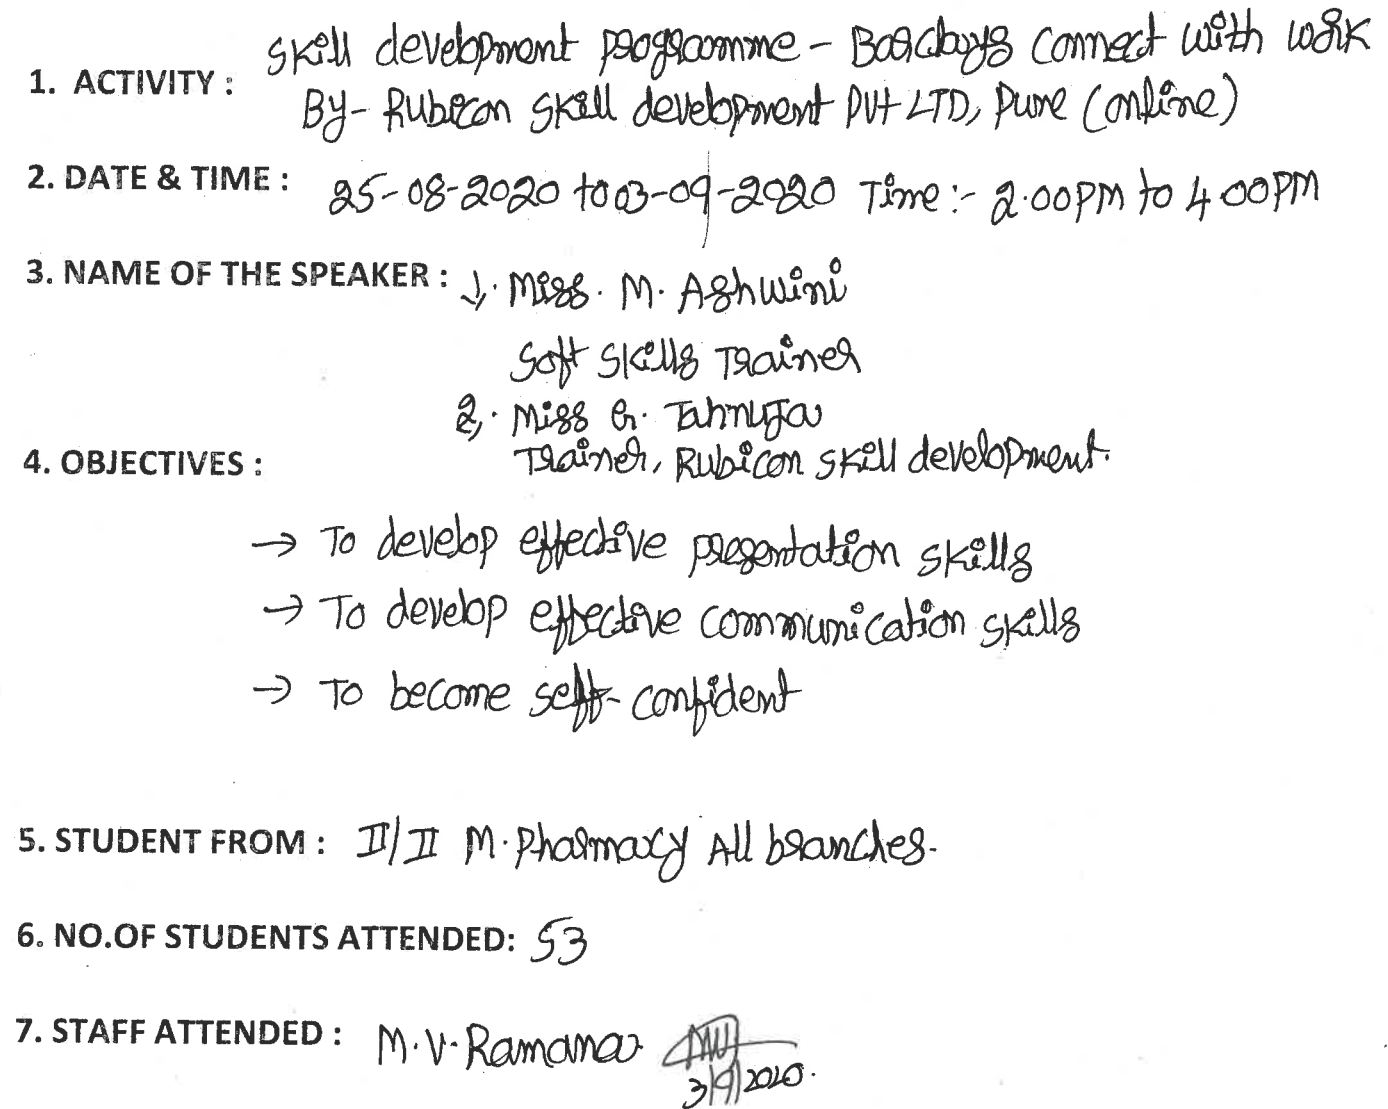 1. ACTIVITY : Skill development programme - Barclays Connect with work
By- Rubicon Skill development PVT LTD, Pune (online)
2. DATE & TIME : 25-08-2020 to 03-09-2020 Time:- 2.00PM to 4.00PM
3. NAME OF THE SPEAKER : 1. Miss. M. Ashwini
Soft Skills Trainer
2. Miss G. Tahnuja
Trainer, Rubicon skill development.
4. OBJECTIVES :
→ To develop effective presentation skills
→ To develop effective communication skills
→ To become self-confident
5. STUDENT FROM : II/II M.Pharmacy All branches.
6. NO.OF STUDENTS ATTENDED: 53
7. STAFF ATTENDED : M.V.Ramana
3/9/2020.